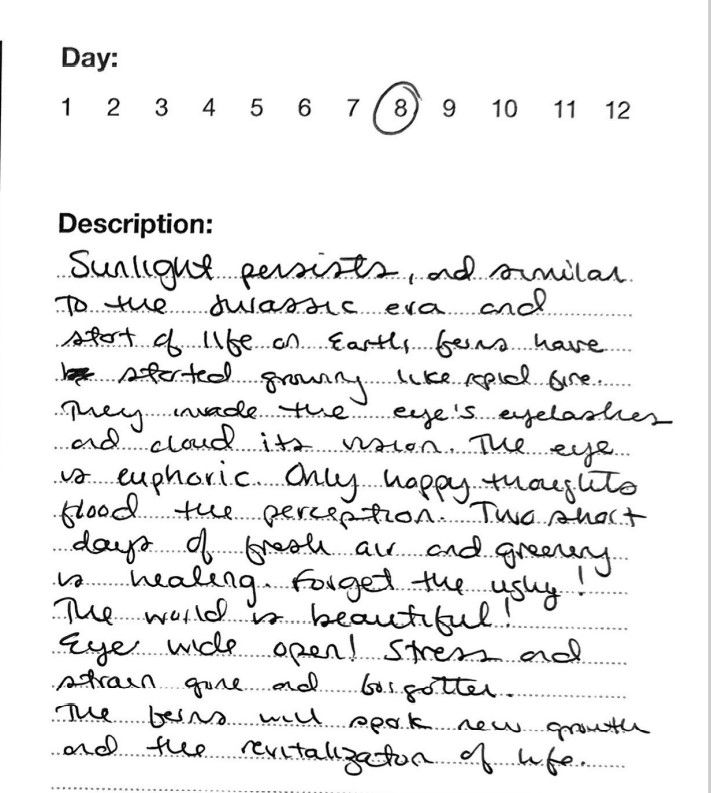 Day:
1 2 3 4 5 6 7 8 9 10 11 12
Description:
Sunlight persists, and similar
to the Jurassic era and
start of life on Earth, ferns have
started growing like rapid fire.
They invade the eye's eyelashes
and cloud its vision. The eye
is euphoric. Only happy thoughts
flood the perception. Two short
days of fresh air and greenery
is healing. Forget the ugly!
The world is beautiful!
Eye wide open! Stress and
strain gone and forgotten.
The ferns will spark new growth
and the revitalization of life.